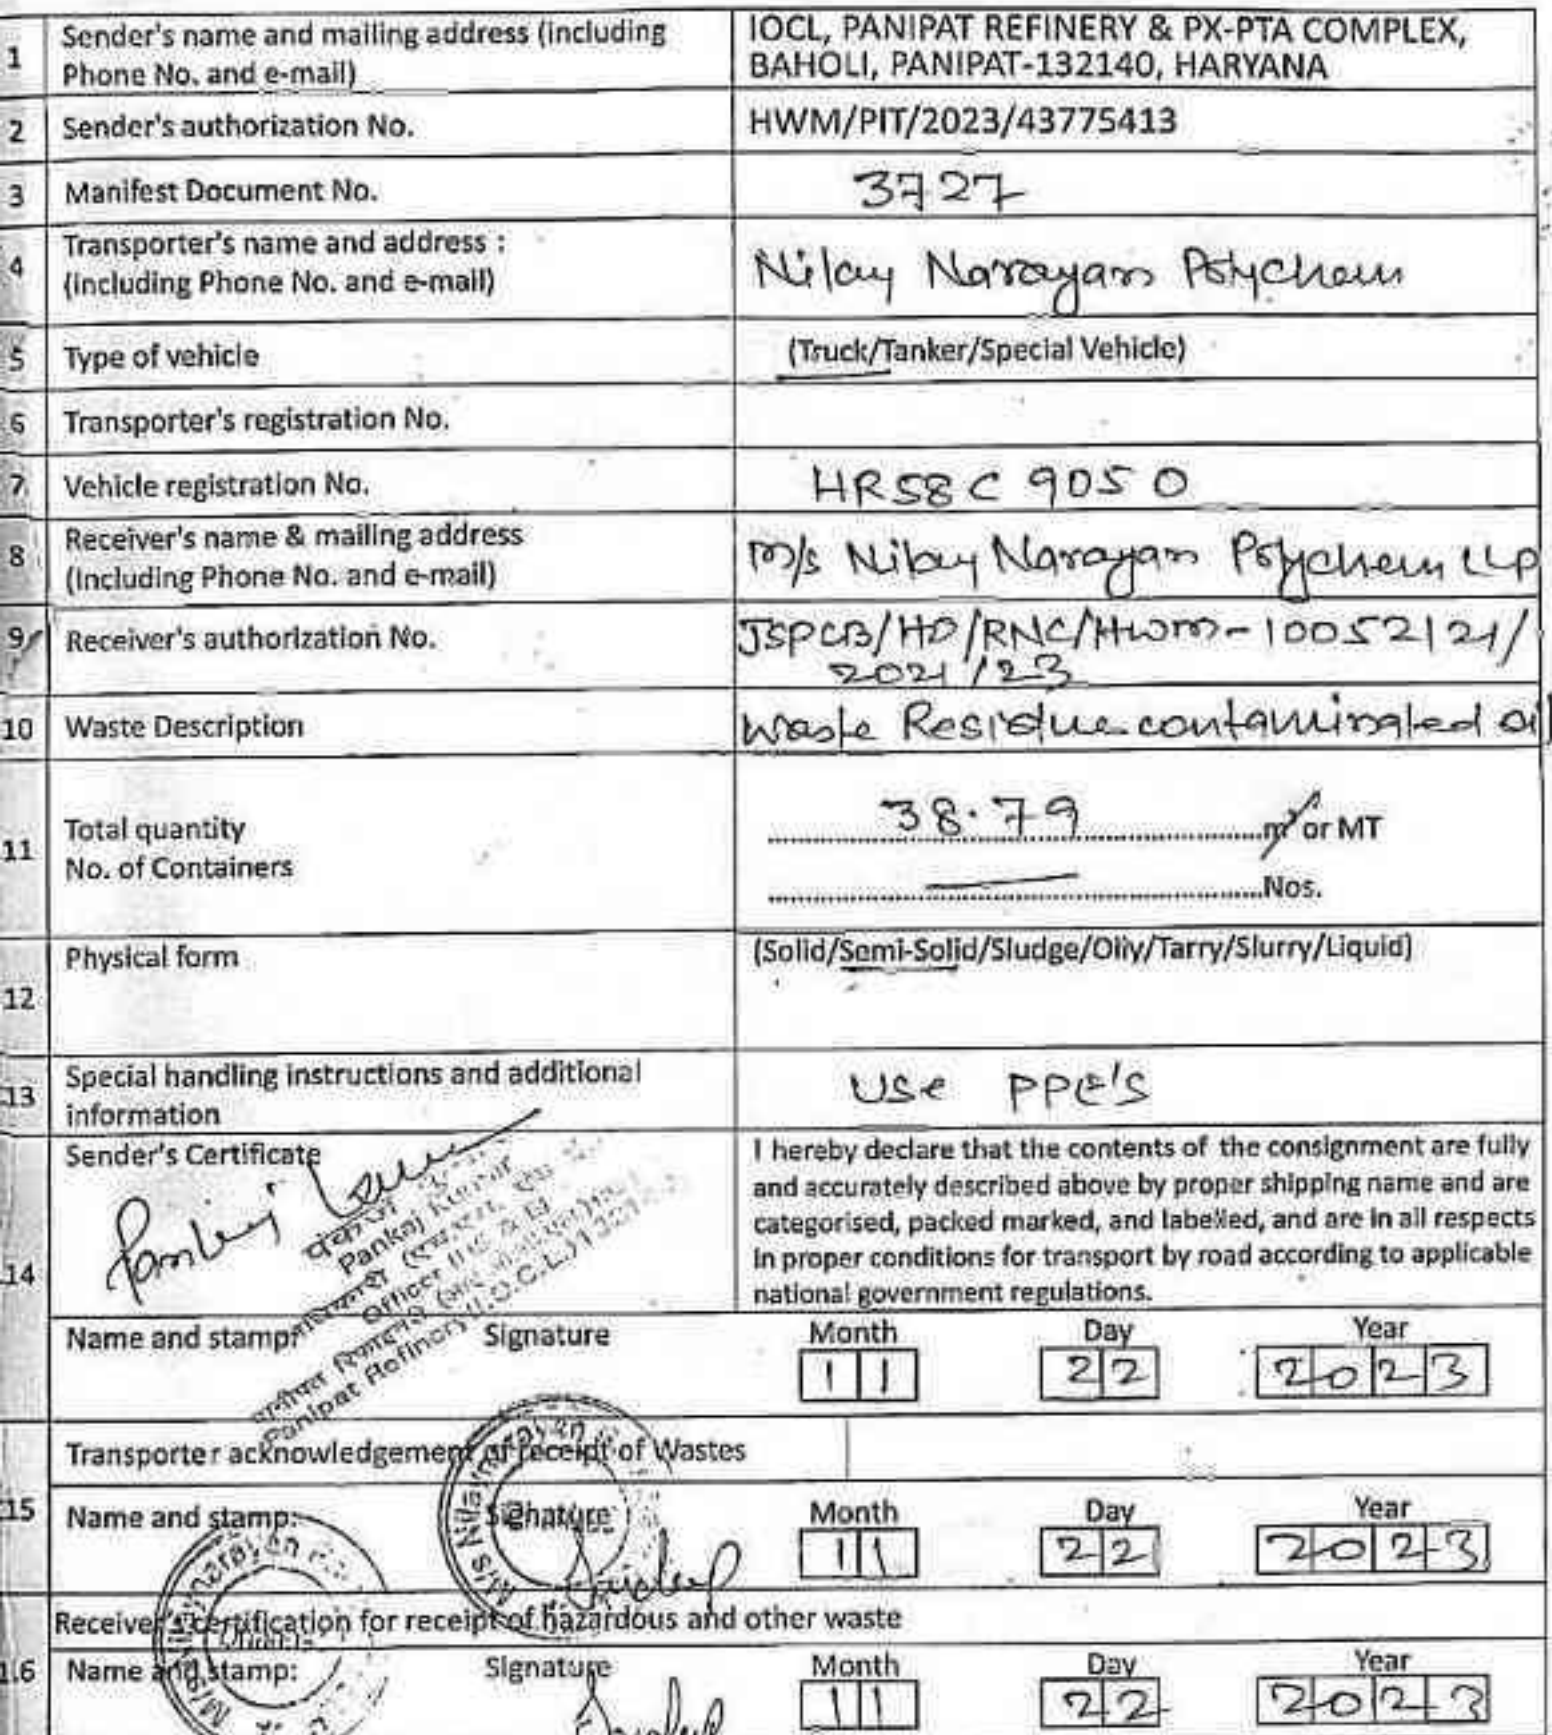 1 Sender's name and mailing address (including
Phone No. and e-mail)
IOCL, PANIPAT REFINERY & PX-PTA COMPLEX,
BAHOLI, PANIPAT-132140, HARYANA
2 Sender's authorization No. HWM/PIT/2023/43775413
3 Manifest Document No. 3727
4 Transporter's name and address :
(including Phone No. and e-mail)
Nilay Narayan Polychem
5 Type of vehicle (Truck/Tanker/Special Vehicle)
6 Transporter's registration No.
7 Vehicle registration No. HR58C 9050
8 Receiver's name & mailing address
(Including Phone No. and e-mail)
M/s Nilay Narayan Polychem LLP
9 Receiver's authorization No.
JSPCB/HO/RNC/HWM-10052121/
2021/23
10 Waste Description Waste Residue contaminated oil
11 Total quantity 38.79 m³ or MT
No. of Containers — Nos.
12 Physical form (Solid/Semi-Solid/Sludge/Oily/Tarry/Slurry/Liquid)
13 Special handling instructions and additional
information
Use PPE's
14 Sender's Certificate
I hereby declare that the contents of the consignment are fully
and accurately described above by proper shipping name and are
categorised, packed marked, and labelled, and are in all respects
in proper conditions for transport by road according to applicable
national government regulations.
Pankaj Kumar
Panipat Refinery (I.O.C.L.)
Name and stamp: Signature Month Day Year
11 22 2023
15 Transporter acknowledgement of receipt of Wastes
Name and stamp: Signature Month Day Year
11 22 2023
16 Receiver's certification for receipt of hazardous and other waste
Name and stamp: Signature Month Day Year
11 22 2023